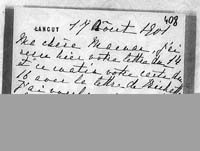 408
LANCUT 17 Août 1901
Ma chère Maman, j'ai
reçu hier votre lettre du 14
et ce matin votre carte du
16 avec la lettre de